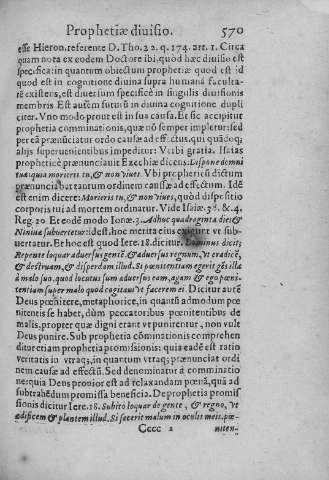 Prophetiæ diuisio. 570
esse Hieron. referente D. Tho. 22. q. 174. art. 1. Circa
quam nota ex eodem Doctore ibi, quòd hæc diuisio est
specifica: in quantum obiectum prophetiæ quod est id
quod est in cognitione diuina supra humanā faculta-
tē existens, est diuersum specificè in singulis diuisionis
membris. Est autē sutū in diuina cognitione dupli
citer. Vno modo prout est in sua causa. Et sic accipitur
prophetia comminationis, quæ nō semper impletur: sed
per eā prænūciatur ordo causæ ad effectū, qui quādoq;
alijs superuenientibus impeditur: Verbi gratia. Isaias
propheticè prænunciauit Ezechiæ dicens: Dispone domui
tuæ quia morieris tu, & non viues. Vbi propheticis dictum
prænunciabat tantum ordinem causæ ad effectum. Idē
est enim dicere: Morieris tu, & non viues, quòd dispositio
corporis tui ad mortem ordinatur. Vide Isaiæ. 38. & 4.
Reg. 20. Et eodē modo Ionæ. 3. Adhuc quadraginta dies &
Niniue subuertetur: idest, hoc merita eius exigunt vt sub-
uertatur. Et hoc est quod Iere. 18. dicitur. Dominus dicit;
Repente loquar aduersus gentē & aduersus regnum, vt eradicē,
& destruam, & disperdam illud. Si pœnitentiam egerit gēs illa
à malo suo, quod locutus sum aduersus eam, agam & ego pœni-
tentiam super malo quod cogitaui vt facerem ei. Dicitur autē
Deus pœnitere, metaphoricè, in quantū ad modum pœ
nitentis se habet, dùm peccatoribus pœnitentibus de
malis, propter quæ digni erant vt punirentur, non vult
Deus punire. Sub prophetia cōminationis comprehen
ditur etiam prophetia promissionis: quia eadē est ratio
veritatis in vtraq;, in quantum vtraq; prænunciat ordi
nem causæ ad effectū. Sed denominatur à comminatio
ne: quia Deus pronior est ad relaxandam pœnā, quā ad
subtrahēdum promissa beneficia. De prophetia promis
sionis dicitur Iere. 18. Subitò loquar de gente, & regno, vt
ædificem & plantem illud. Si fecerit malum in oculis meis. pœ-
Cccc 2 niten-